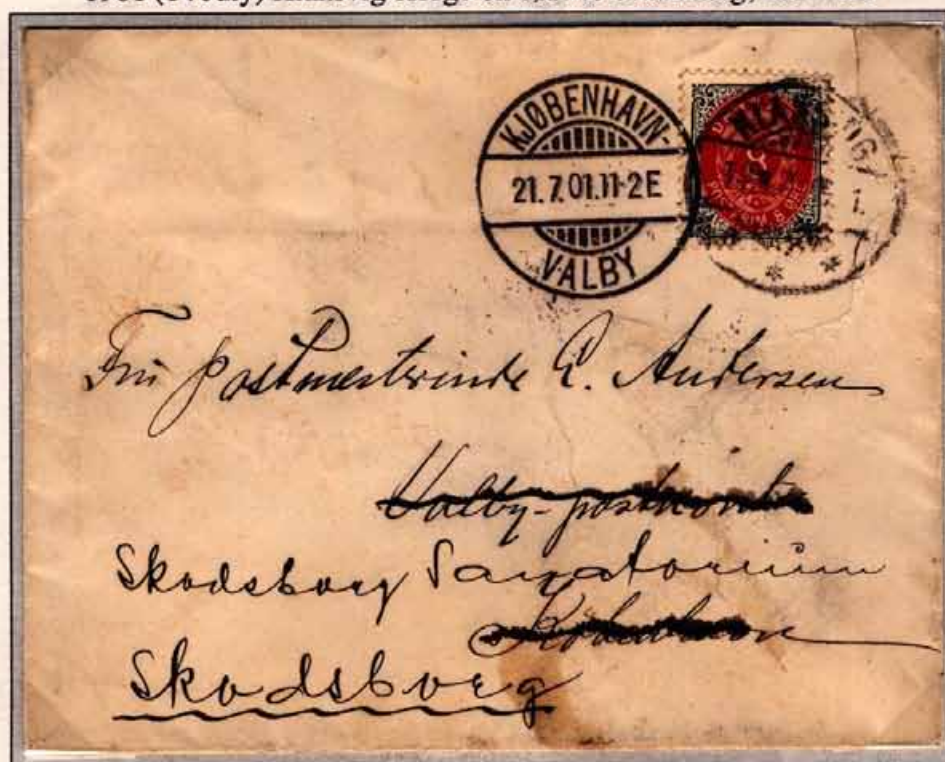 KJØBENHAVN-
21.7.01.11-2E
VALBY
Fru Postmesterinde E. Andersen
Valby-postkontor
Skodsborg Sanatorium
København
Skodsborg